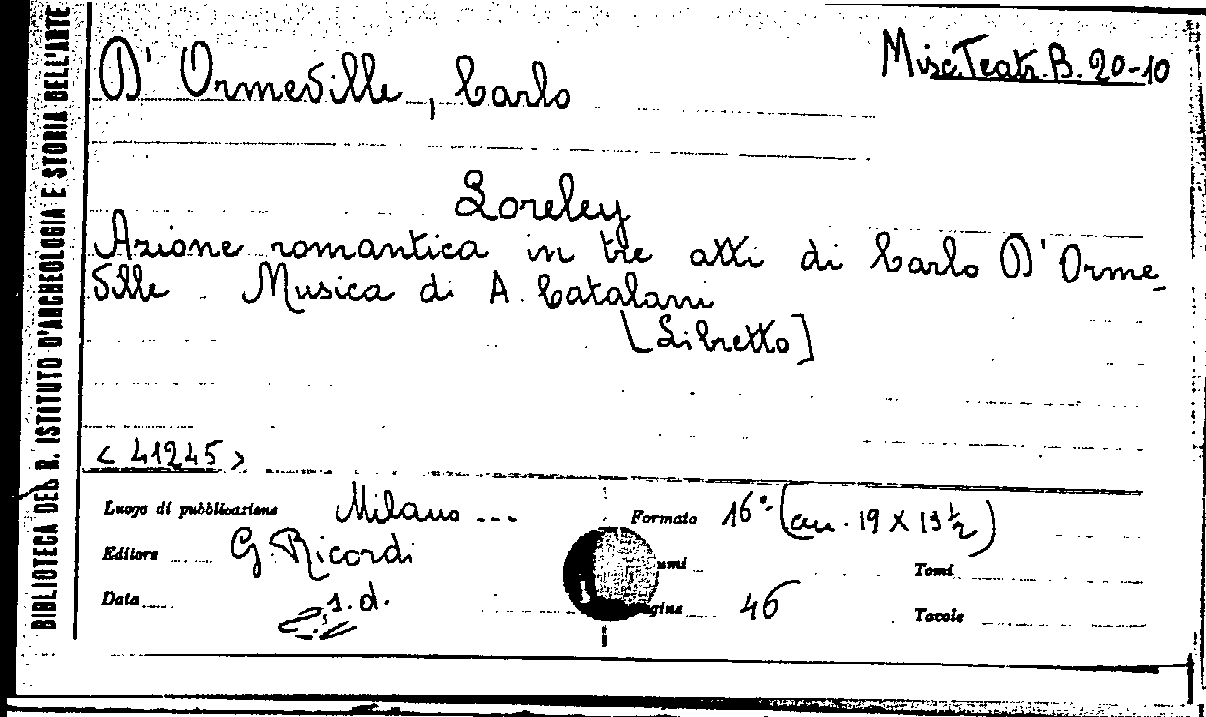 BIBLIOTECA DEL R. ISTITUTO D'ARCHEOLOGIA E STORIA DELL'ARTE
Misc. Teatr. B. 20-10
D'Ormeville, Carlo
Loreley
Azione romantica in tre atti di Carlo D'Orme-
ville. Musica di A. Catalani
[Libretto]
< 41245 >
Luogo di pubblicazione Milano ... Formato 16° (cm. 19 X 13 ½)
Editore G. Ricordi umi Tomi
Data s. d. agine 46 Tavole